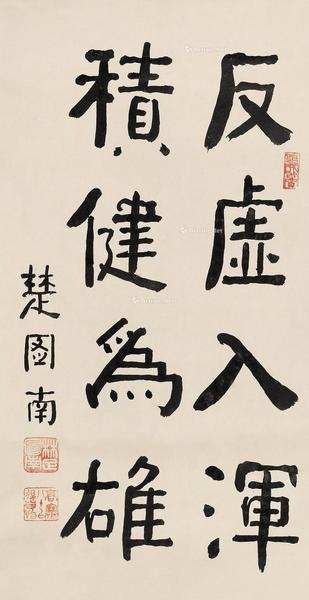 反虛入渾
積健為雄
楚图南